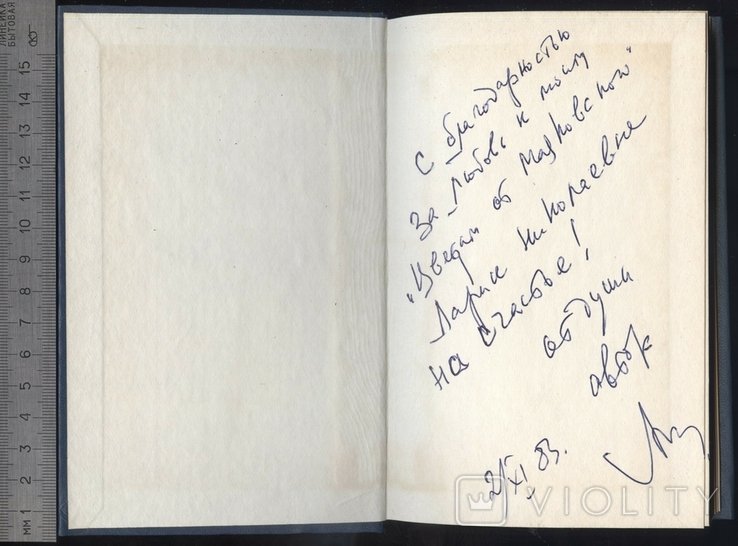 С благодарностью
за любовь к моим
"Цветам от Маяковского"
Ларисе Николаевне
на счастье!
от души
автор
XI 83.
ЛИНЕЙКА
БЫТОВАЯ
15
14
13
12
11
10
9
8
7
6
5
4
3
2
1
ММ
VIOLITY